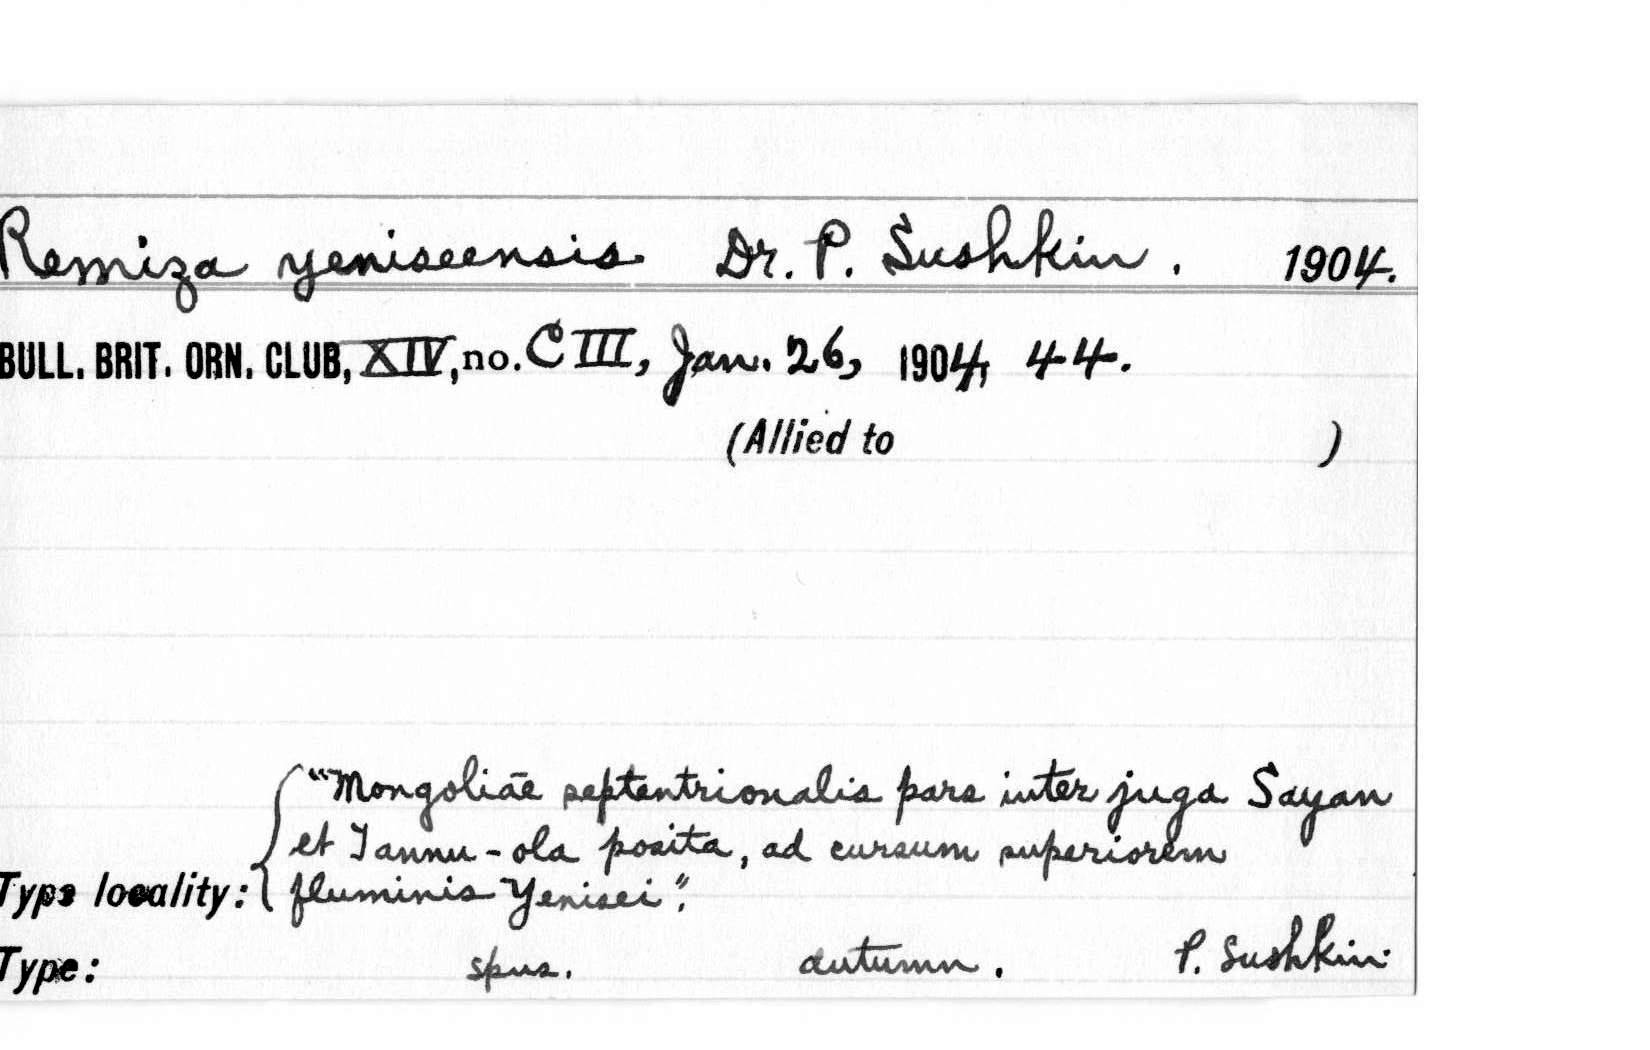 Remiza yeniseensis Dr. P. Sushkin. 1904.
BULL. BRIT. ORN. CLUB, XIV, no. CIII, Jan. 26, 1904, 44.
(Allied to )
"Mongoliae septentrionalis pars inter juga Sayan
et Tannu-ola posita, ad cursum superiorem
Type locality: fluminis Yenisei".
Type: spns. autumn. P. Sushkin.